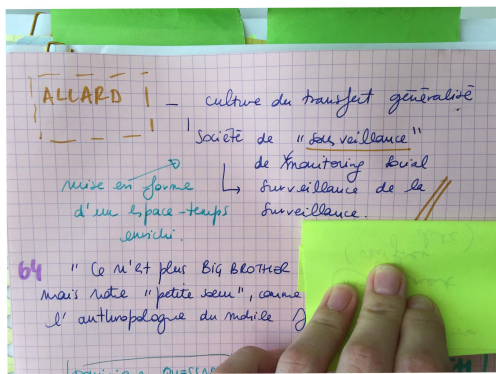 ALLARD — culture du transfert généralisé
Société de "sousveillance"
de monitoring social
↳ surveillance de la
surveillance.
mise en forme
d'un espace-temps
enrichi.
64 "Ce n'est plus BIG BROTHER
mais notre "petite sœur", comme
l'anthropologue du mobile